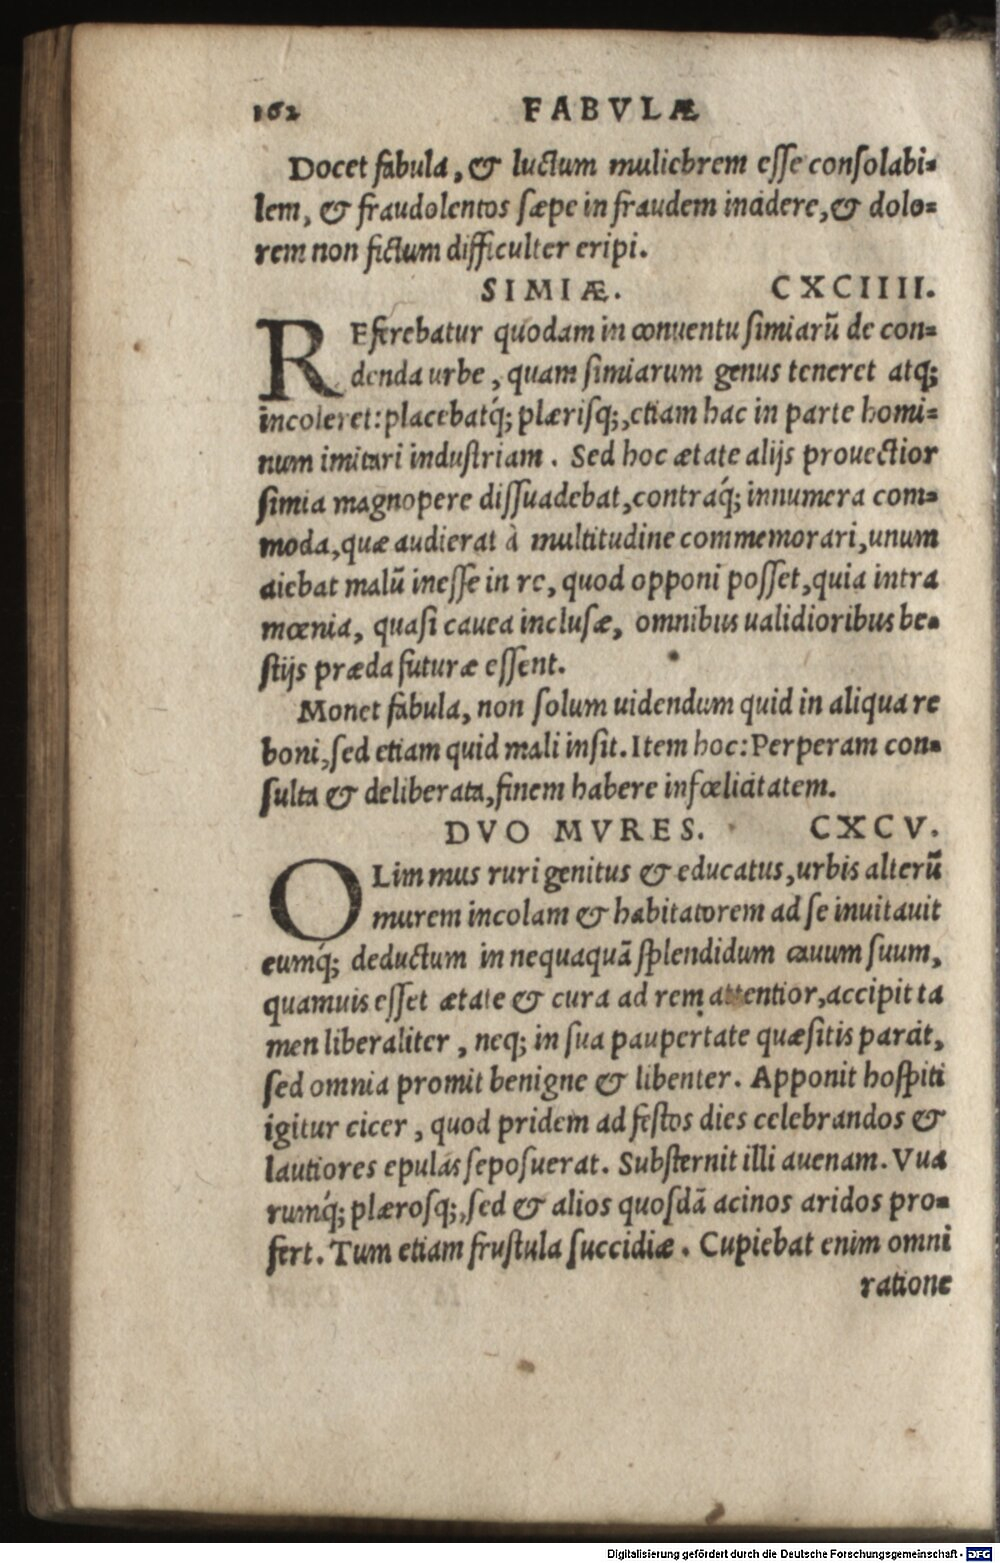 162 FABVLÆ
Docet fabula, & luctum muliebrem esse consolabi=
lem, & fraudolentos sæpe in fraudem incidere, & dolo=
rem non fictum difficulter eripi.
SIMIÆ. CXCIIII.
REferebatur quodam in conuentu simiarū de con=
denda urbe, quam simiarum genus teneret atq;
incoleret: placebatq́; plærisq;, etiam hac in parte homi=
num imitari industriam. Sed hoc ætate alijs prouectior
simia magnopere dissuadebat, contraq́; innumera com=
moda, quæ audierat à multitudine commemorari, unum
aiebat malū inesse in re, quod opponi posset, quia intra
mœnia, quasi cauea inclusæ, omnibus ualidioribus be=
stijs præda futuræ essent.
Monet fabula, non solum uidendum quid in aliqua re
boni, sed etiam quid mali insit. Item hoc: Perperam con=
sulta & deliberata, finem habere infœlicitatem.
DVO MVRES. CXCV.
OLim mus ruri genitus & educatus, urbis alterū
murem incolam & habitatorem ad se inuitauit
eumq́; deductum in nequaquā splendidum cauum suum,
quamuis esset ætate & cura ad rem attentior, accipit ta
men liberaliter, neq; in sua paupertate quæsitis parcit,
sed omnia promit benigne & libenter. Apponit hospiti
igitur cicer, quod pridem ad festos dies celebrandos &
lautiores epulas seposuerat. Substernit illi auenam. Vua
rumq́; plærosq;, sed & alios quosdā acinos aridos pro=
fert. Tum etiam frustula succidiæ. Cupiebat enim omni
ratione
Digitalisierung gefördert durch die Deutsche Forschungsgemeinschaft - DFG